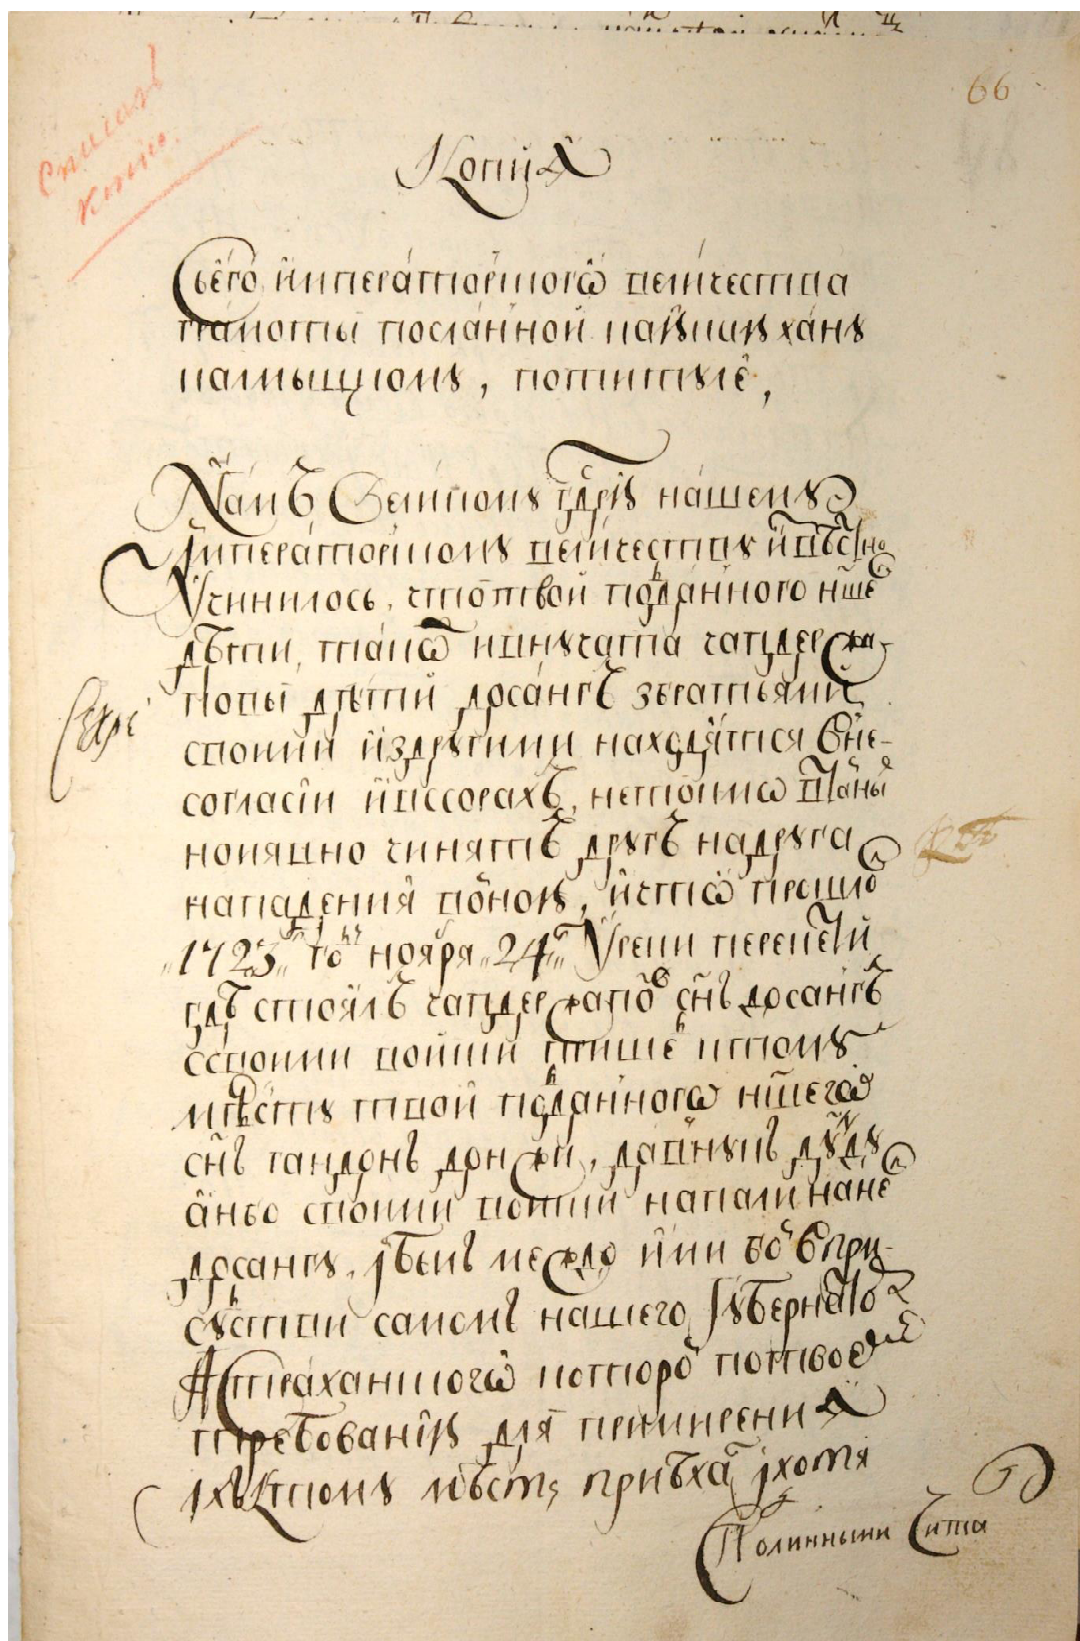 66
Списал
копию.
Копия
Съего императорского величества
грамоты посланной каюке хану
калмыцкому, потитуле,
Намъ Великому Гдрю нашему
Императорскому величеству известно
Учинилось, что твой подданного нше
дѣти, такоѿ и внучата чапдержа-
повы дѣти досангъ збратьями
своими издругими находятся вне-
согласии и вссорахъ, нетокмо
но и явно чинятъ другъ надруга
нападения войною, и что прошло
1723 го ноября 24 У реки
гдѣ стоялъ чапдержаповъ снъ досангъ
ссвоими войски пришед ктому
мѣсту твой подданного ншего
снъ гандонъ дон жи, да внукъ дунду
анбо своими войски напали нане
досангу, и былъ между ими бой впри-
суствии самомъ нашего Губернатора
Астраханского которой потвоему
требованию для примирения
ихъ ктому мѣсту приѣхал и хотя
Полинными Чита